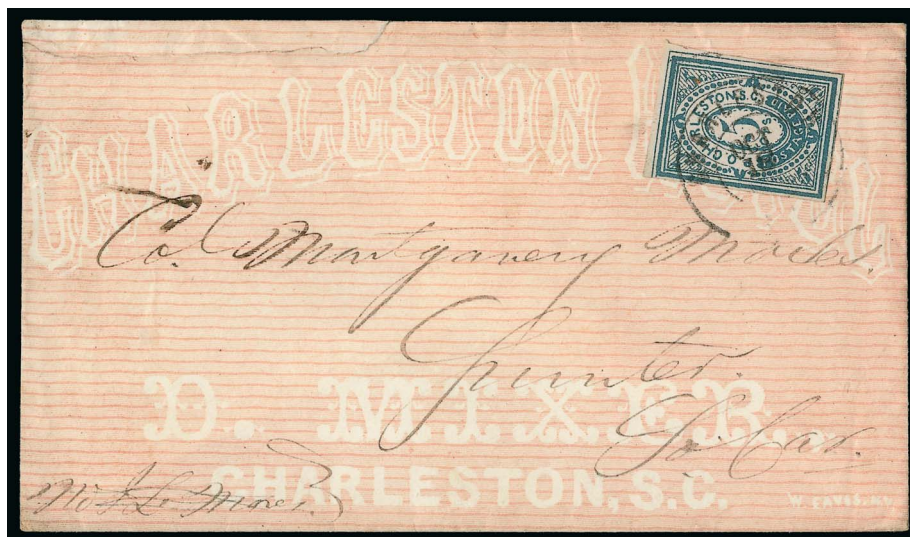 CHARLESTON HOTEL
P.O. CHARLESTON, S.C.
POSTAGE PAID
5
Col. Montgomery Moses.
Sumter.
So. Car.
D. MIXER.
CHARLESTON, S.C.
W. EAVES. N.Y.